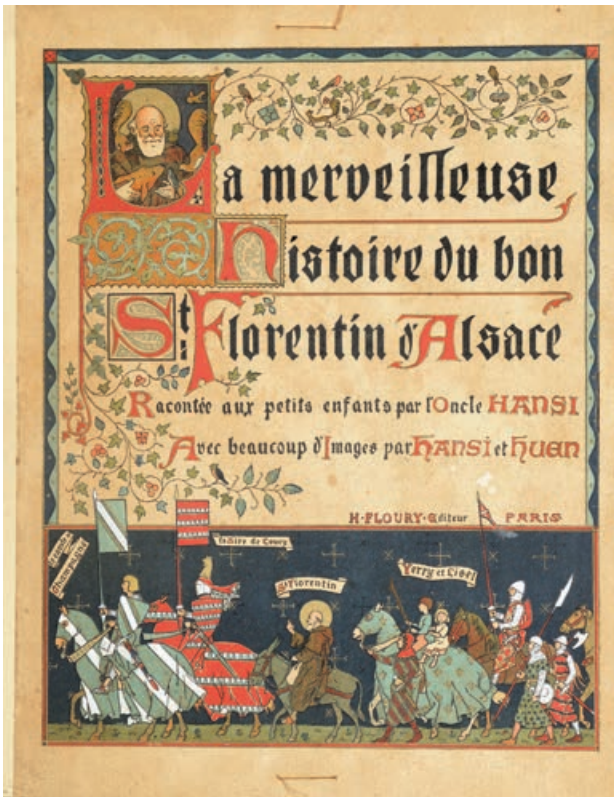 La merveilleuse
histoire du bon
St. Florentin d'Alsace
Racontée aux petits enfants par l'Oncle HANSI
Avec beaucoup d'Images par Hansi et Huen
H·FLOURY·Editeur PARIS
Champagne
le Sire de Coucy
St Florentin
Yerry et Lisel